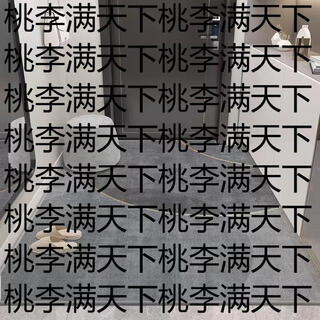 桃李满天下桃李满天下
桃李满天下桃李满天下
桃李满天下桃李满天下
桃李满天下桃李满天下
桃李满天下桃李满天下
桃李满天下桃李满天下
桃李满天下桃李满天下
桃李满天下桃李满天下